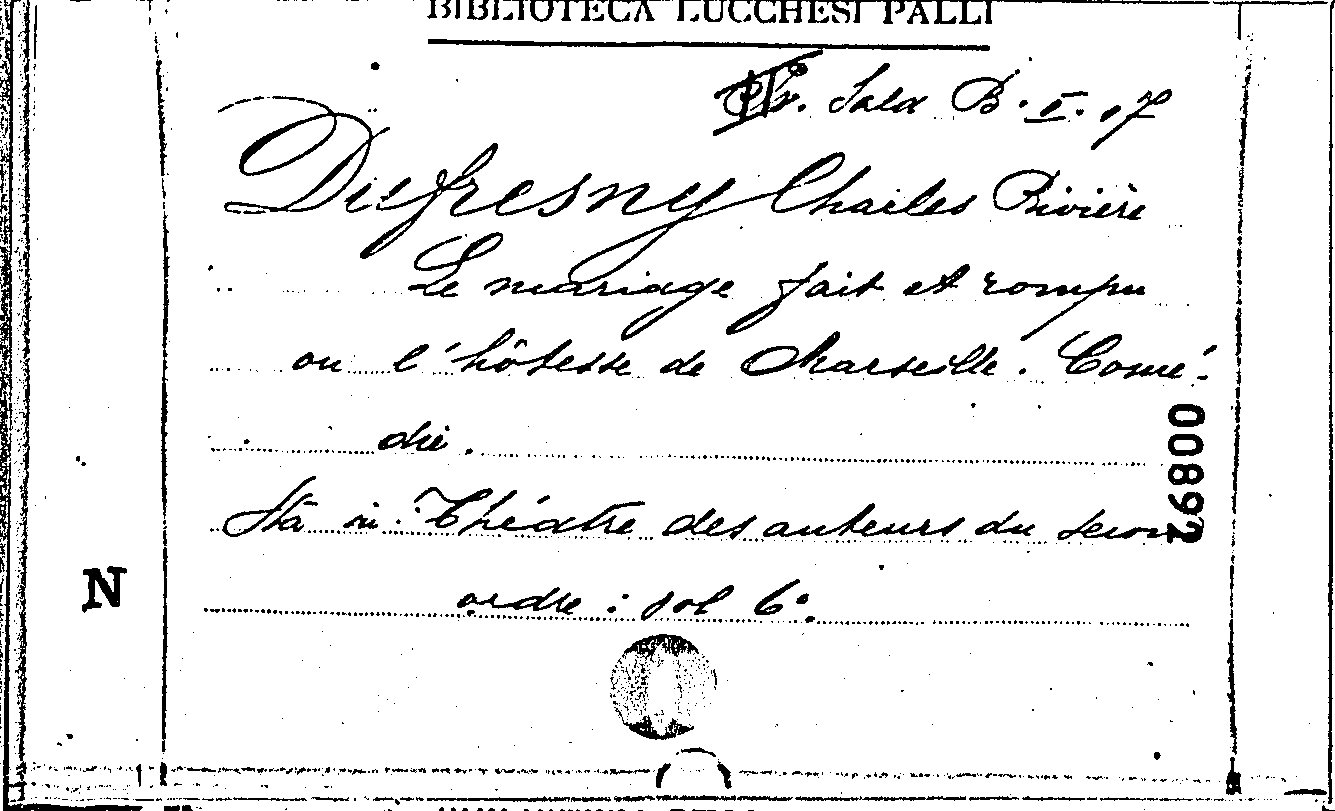 BIBLIOTECA LUCCHESI PALLI
Sala B. II. 17
Dufresny Charles Rivière
Le mariage fait et rompu
ou l'hôtesse de Marseille. Comé-
die.
Sta in: Théatre des auteurs du second
ordre: vol 6º.
00892
N